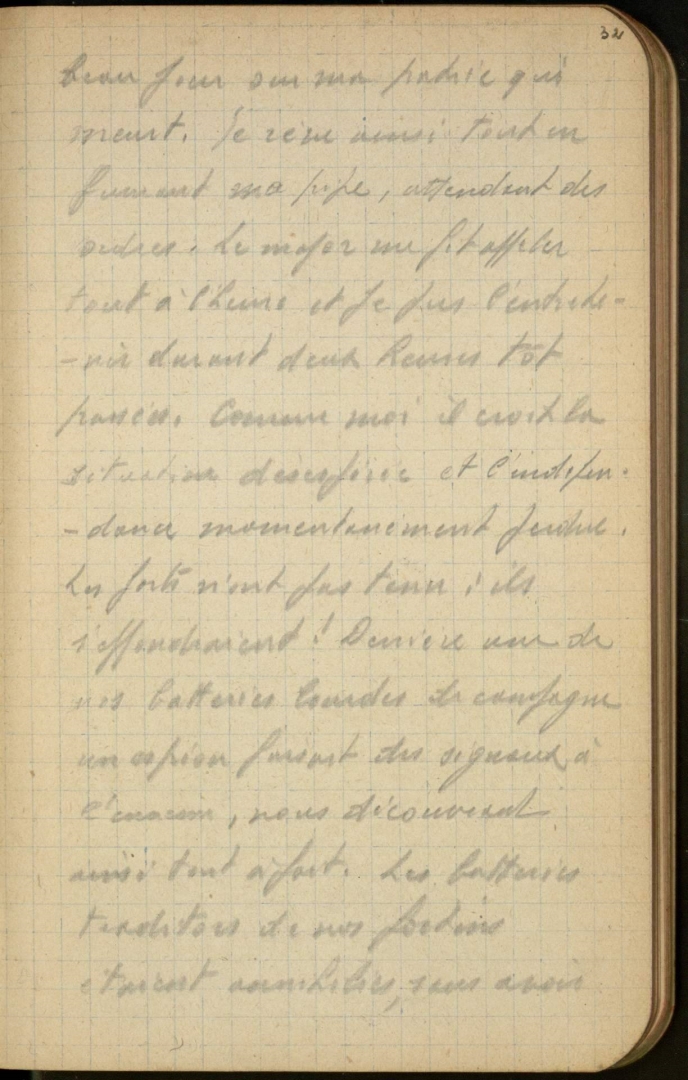 32
beau jour sur ma patrie qui
meurt. Je rêve ainsi tout en
fumant ma pipe, attendant des
ordres. Le major me fit appeler
tout à l'heure et je pus l'entrete-
-nir durant deux heures tôt
passées. Comme moi il croit la
situation désespérée et l'indépen-
-dance momentanément perdue.
Les forts n'ont pas tenu; ils
s'effondraient! Derrière une de
nos batteries lourdes de campagne
un espion faisait des signaux à
l'ennemi, nous découvrant
ainsi tout à fait. Les batteries
traditors de nos fortins
étaient annihilées, sans avoir